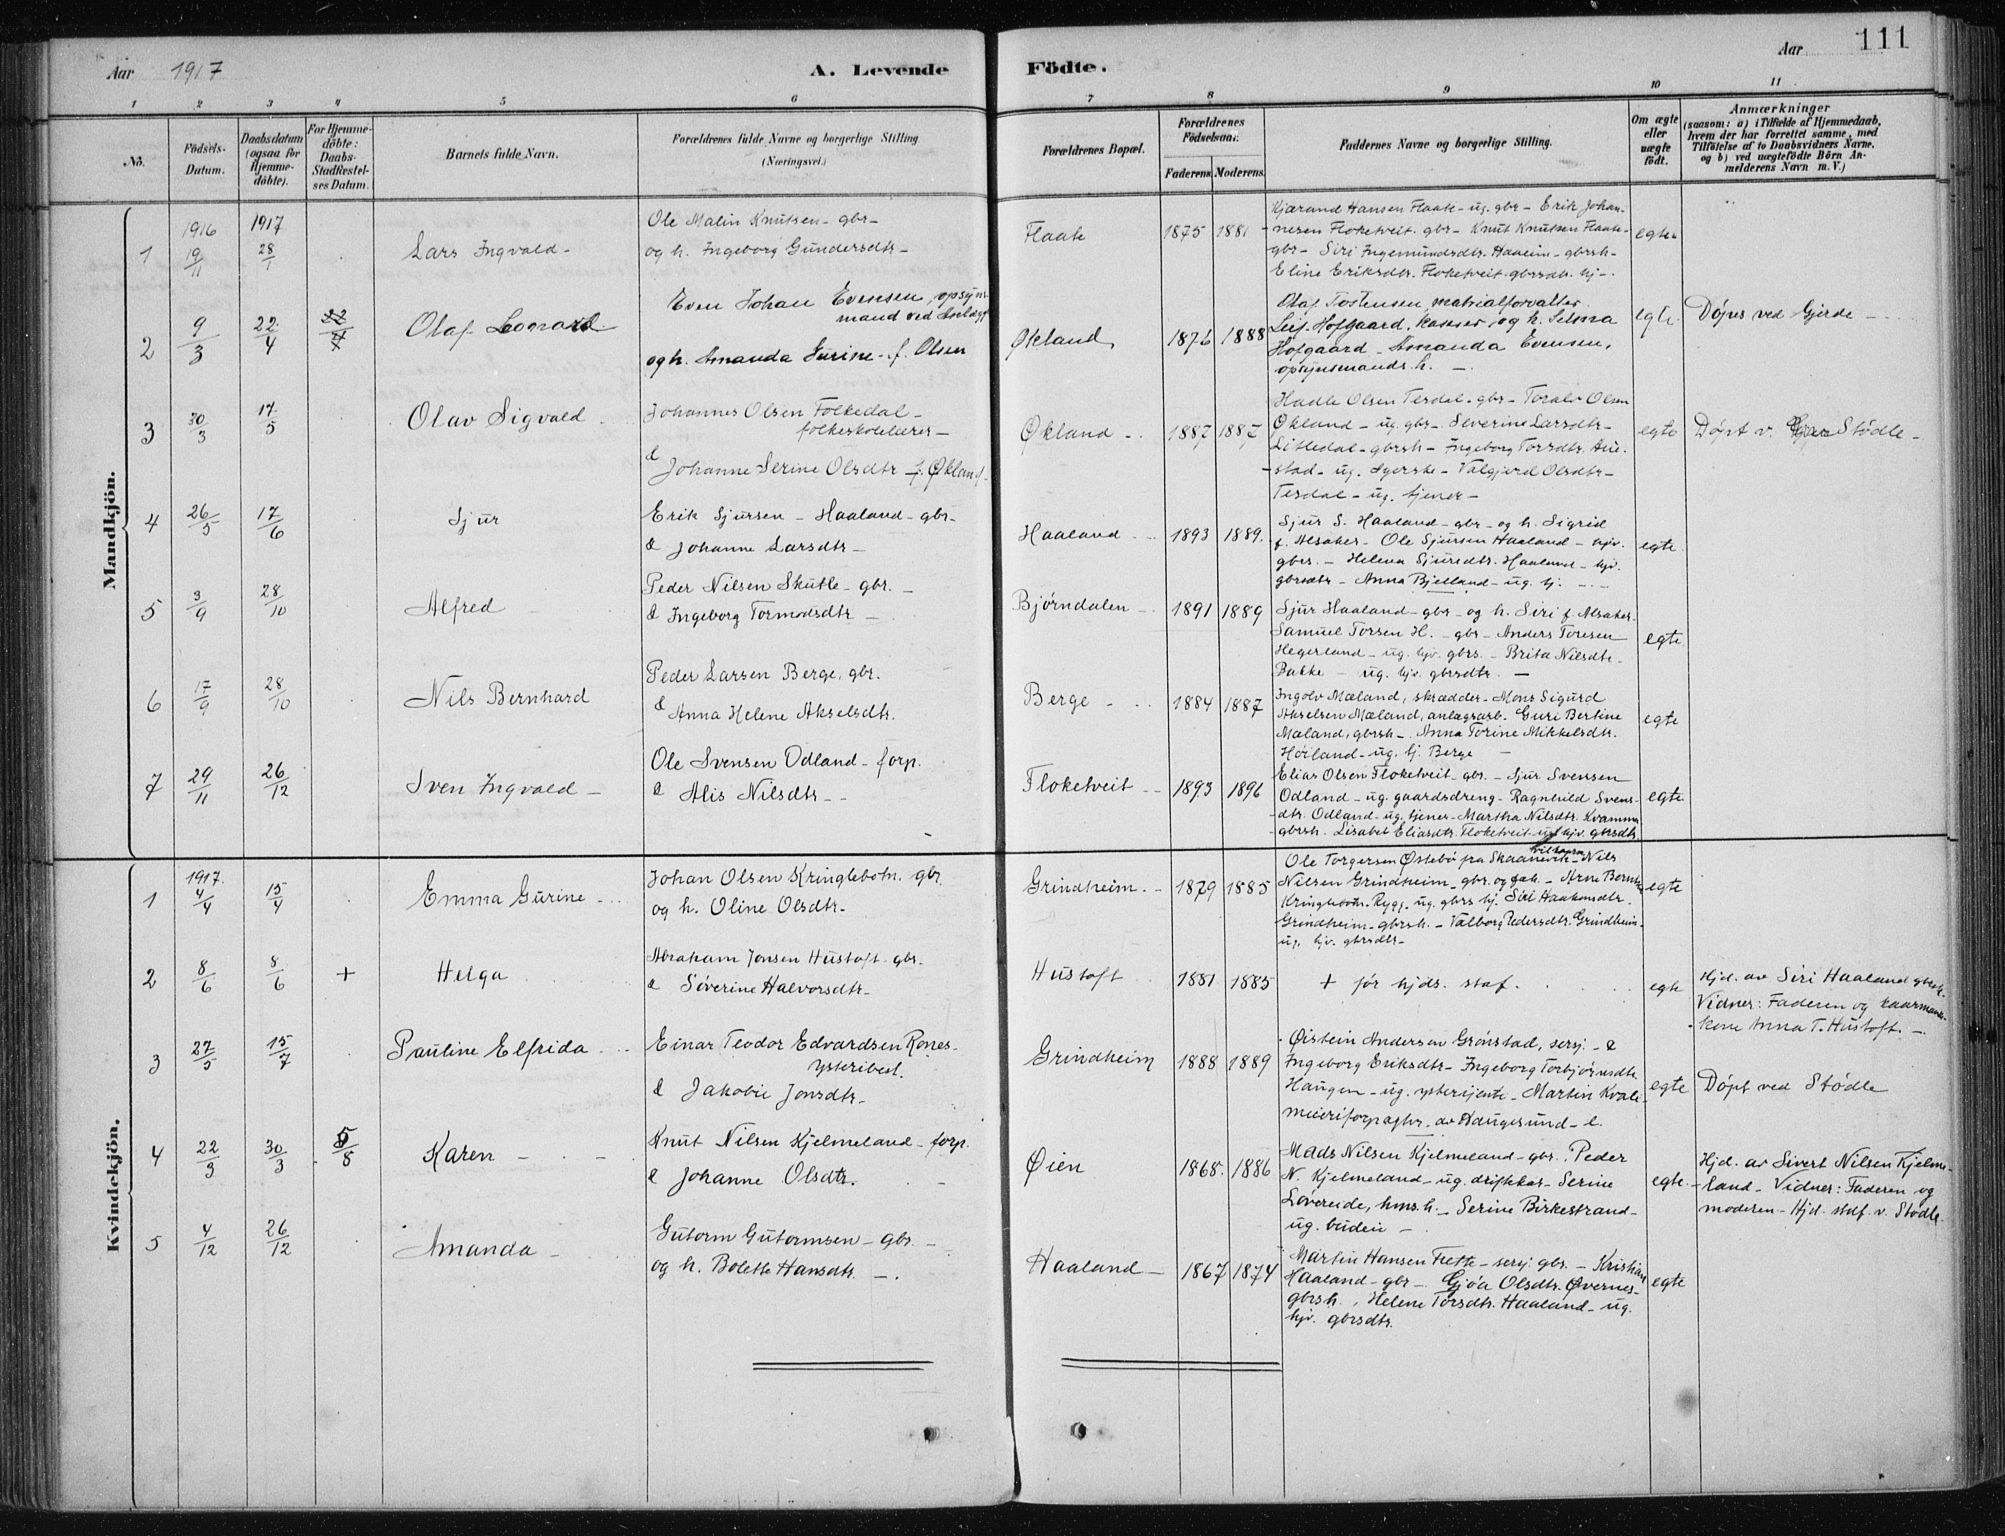 Aar 1917
A. Levende
Födte.
Aar 111
1 2 3 4 5 6 7 8 9 10 11
No.
Födsels-
Datum.
Daabsdatum
(ogsaa for
Hjemme-
döbte).
For Hjemme-
döbte:
Daabs-
Stadfæstel-
ses Datum.
Barnets fulde Navn.
Forældrenes fulde Navne og borgerlige Stilling
(Næringsvei.)
Forældrenes Bopæl.
Forældrenes
Födselsaar.
Faderens. Moderens.
Faddernes Navne og borgerlige Stilling.
Om ægte
eller
uægte
födt.
Anmærkninger
(saasom: a) i Tilfælde af Hjemmedaab,
hvem der har forrettet samme, med
Tilföielse af to Daabsvidners Navne,
og b) ved uægtefödte Börn An-
melderens Navn m.V.)
Mandkjön.
1
1916
19/11
1917
28/1
Lars Ingvald -
Ole Malin Knutsen - gbr -
og h. Ingeborg Gundersdtr -
Flaate
1875 1881
Kjærand Hansen Flaate - ug. gbr - Erik Johan-
nesen Floketveit. gbr - Knut Knutsen Flaate -
gbr - Siri Ingemundsdtr. Haaheim - gbrsh -
Eline Eriksdtr. Floketveit. gbrsdtr. hj -.
egte
2
9/3
22/4
Olaf Leonard
Even Johan Evensen, opsyns-
mand ved Anlægg
og h. Amanda Gurine - f. Olsen
Økland
1876 1888
Olaf Tostensen, matrialforvalter.
Leif Hofgaard, kasser, og h. Selma
Hofgaard - Amanda Evensen,
opsynsmands h. -
egte
Døpes ved Gjerde -
3
30/3
17/5
Olav Sigvald
Johannes Olsen Folkedal -
folkeskolelærer -
& Johanne Serine Olsdtr f. Økland.
Økland -
1887 1887
Hadle Olsen Tesdal - gbr - Toralv Olsen
Økland - ug. gbr - Severine Larsdtr -
Litledal - gbrsh - Ingeborg Torsdtr. Aue-
stad - ug. syerske - Valgjerd Olsdtr -
Tesdal - ug. tjener -
egte
Døpt v. Stödle -
4
26/5
17/6
Sjur
Erik Sjursen - Haaland - gbr -
& Johanne Larsdtr -
Haaland -
1893 1889.
Sjur S. Haaland - gbr - og h. Sigrid
f. Alsaker - Ole Sjursen Haaland - hjv.
gbrs. - Helena Sjursdtr. Haaland - hjv.
gbrsdtr - Anna Bjelland - ug. hj. -
egte
5
3/9
28/10
Alfred
Peder Nilsen Skutle - gbr. -
& Ingeborg Tormodsdtr -
Bjørndalen -
1891 1889
Sjur Haaland - gbr - og h. Siri f. Alsaker -
Samuel Torsen H. - gbr - Anders Toresen
Hegerland - ug. hjv. gbrs. - Brita Nilsdtr -
Bakke - ug. hjv. gbrsdtr. -
egte
6
17/9
28/10
Nils Bernhard
Peder Larsen Berge, gbr.
& Anna Helene Akselsdtr.
Berge -
1884 1887
Ingolv Mæland, skrædder - Mons Sigurd
Akselsen Mæland, anlægsarb. Guri Bertine
Mæland, gbrsh - Anna Torine Mikkelsdtr.
Høiland - ug. hj. Berge -
egte
7
29/11
26/12
Sven Ingvald -
Ole Svensen Odland - forp.
& Alis Nilsdtr -
Floketveit -
1893 1896
Elias Olsen Floketveit - gbr. - Sjur Svensen
Odland - ug. gaardsdreng - Ragnhild Svens-
dtr. Odland - ug. tjener - Martha Nilsdtr. Kvamme
gbrsh. Lisabet Eliasdtr. Floketveit - ug. hjv. gbrsdtr
egte
Kvindekjön.
1
1917.
4/4
15/4
Emma Gurine -
Johan Olsen Kringlebotn. gbr.
og h. Oline Olsdtr -
Grindheim. -
1879 1885
Ole Torgersen Østebø fra Skaanevik - Nils
Nilsen Grindheim - gbr. og - Arne Bernhard
Kringlebotn. Rygg, ug. gbrs hj. Siri Haakonsdtr.
Grindheim - gbrsh. - Valborg Pedersdtr. Grindheim -
ug. hjv. gbrsdtr -
egte
2
8/6
8/6
+
Helga
Abraham Jonsen Hustoft gbr.
& Söverine Halvorsdtr -
Hustoft
1881 1885
+ før hjds. staf.
egte
Hjd. av Siri Haaland gbrsh.
Vidner: Faderen og kaarmands-
kone Anna T. Hustoft. -
3
27/5
15/7
Pauline Elfrida
Einar Teodor Edvardsen Rones -
ysteribest.
& Jakobie Jonsdtr -
Grindheim
1888 1889
Øistein Andersen Grønstad, sersj. - &
Ingeborg Eriksdtr - Ingeborg Torbjørnsdtr.
Haugen - ug. ysterijente - Martin Kvale -
meieriforpagter. av Haugesund - e.
egte
Døpt ved Stödle
4
22/3
30/3
5/8
Karen -
Knut Nilsen Kjelmeland - forp.
& Johanne Olsdtr. -
Øien
1865. 1886
Mads Nilsen Kjelmeland - gbr. Peder
N. Kjelmeland - ug. driftekar - Serine
Løvereide, hms.h. - Serine Birkestrand -
ug. budeie -
egte.
Hjd. av Sivert Nilsen Kjelme-
land - Vidner: Faderen og
moderen - Hjd. staf. v. Stödle.
5
4/12
26/12
Amanda -
Gutorm Gutormsen - gbr. -
og h. Bolette Hansdtr. -.
Haaland -
1867 1874
Martin Hansen Frette - sersj. gbr. - Kristian
Haaland - gbr - Gjøa Olsdtr. Øvernes -
gbrsh., Helene Torsdtr. Haaland - ug.
hjv. gbrsdtr.
egte